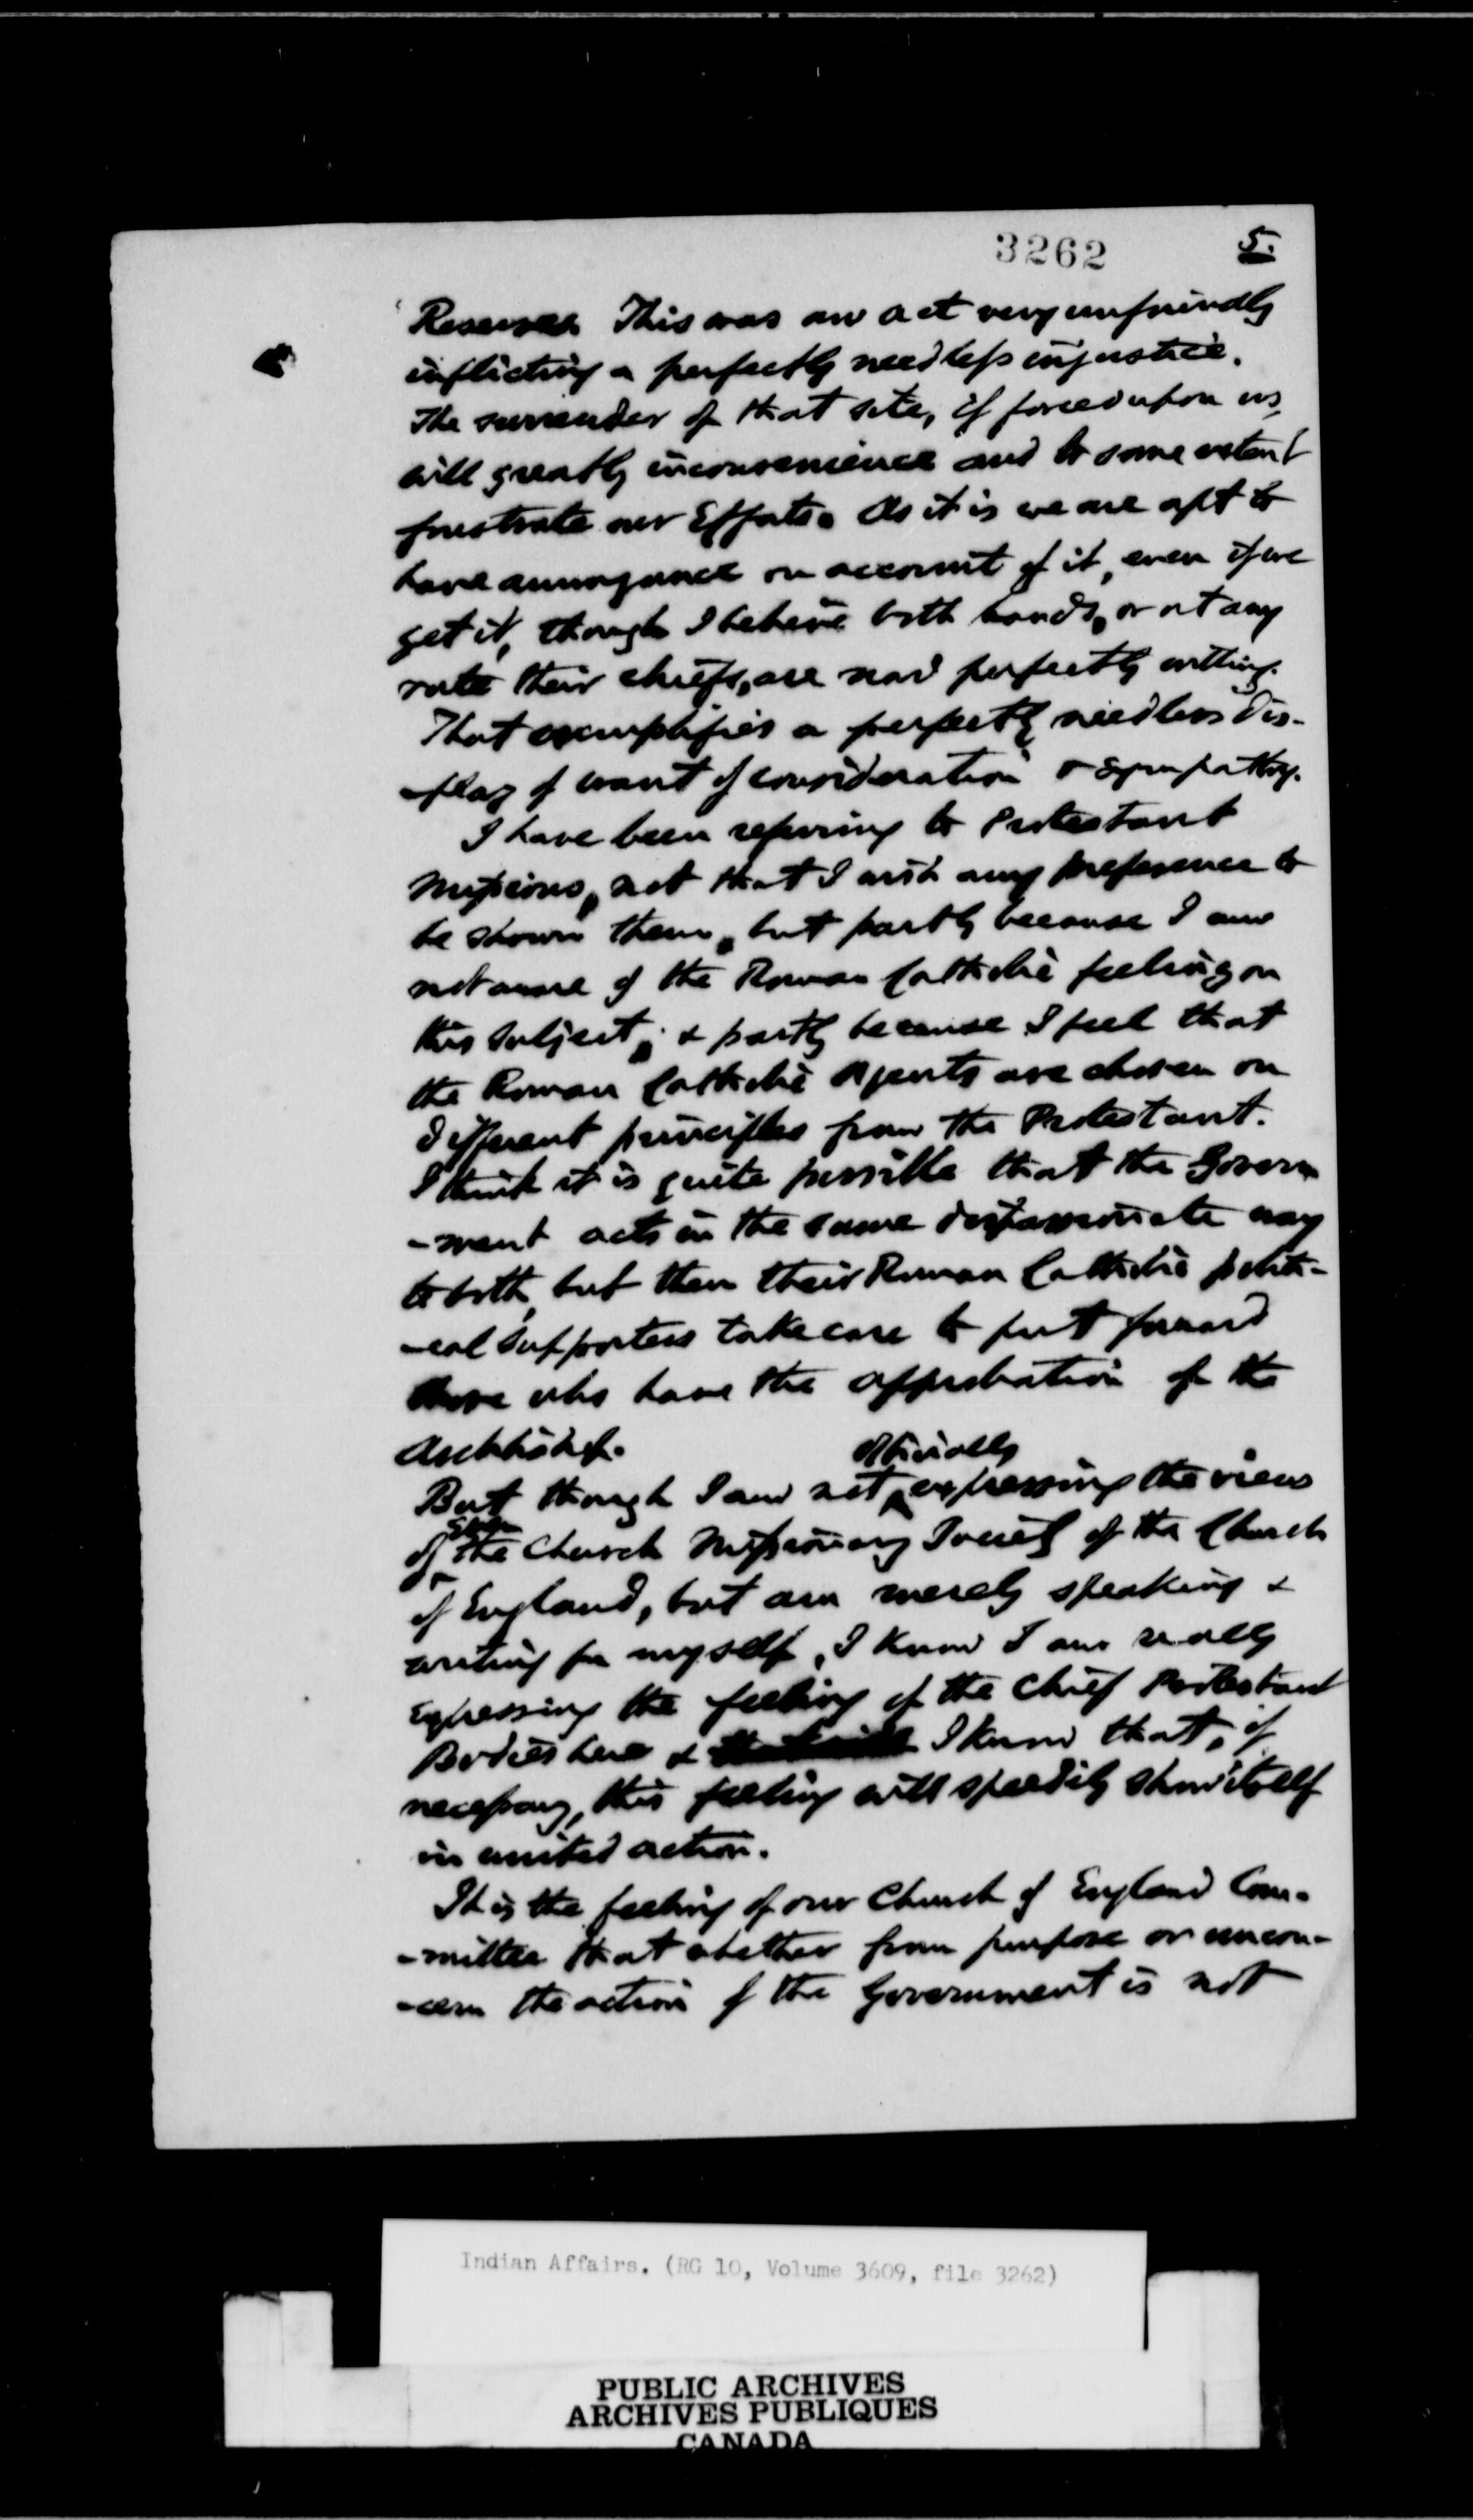 3262
5.
Reserves This was an act very unfriendly
inflicting a perfectly needless injustice.
The surrender of that site, if forced upon us,
will greatly inconvenience and to some extent
frustrate our Efforts. As it is we are apt to
have annoyance on account of it, even if we
get it, though I believe both bands, or at any
rate their chiefs, are now perfectly willing.
That exemplifies a perfectly needless dis-
-play of want of consideration & sympathy.
I have been referring to Protestant
Missions, not that I wish any preference to
be shown them, but partly because I am
not aware of the Roman Catholic feeling on
this subject; & partly because I feel that
the Roman Catholic Agents are chosen on
different principles from the Protestant.
I think it is quite possible that the Govern
-ment acts in the same dispassionate way
to both, but then their Roman Catholic politi-
-cal supporters take care to put forward
those who have the approbation of the
Archbishop.
officially
But though I am not expressing the views
of the Church Missionary Society of the Church
of England, but am merely speaking &
writing for myself, I know I am really
expressing the feeling of the chief Protestant
Bodies here & I know that, if
necessary, this feeling will speedily show itself
in united action.
It is the feeling of our Church of England Com-
-mittee that whether from purpose or uncon-
-cern the action of the Government is not
Indian Affairs. (RG 10, Volume 3609, file 3262)
PUBLIC ARCHIVES
ARCHIVES PUBLIQUES
CANADA